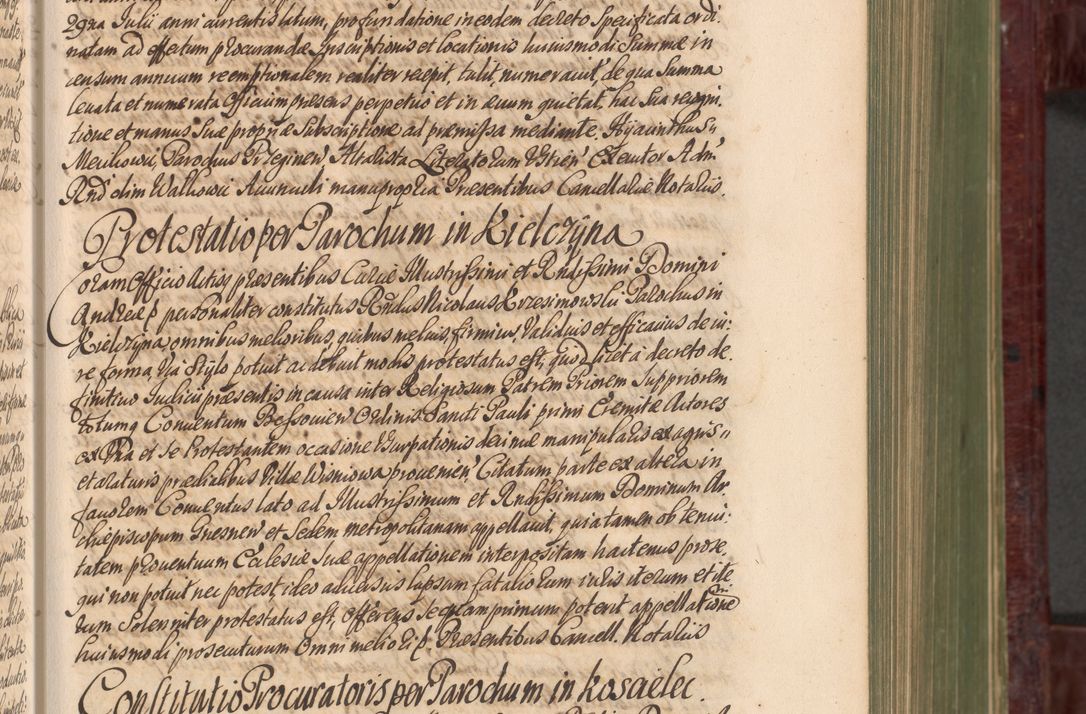 29na Julii anni currentis latum, pro fundatione in eodem decreto Specificata ordi
natam ad effectum procurandæ Inscriptionis et locationis huiusmodi Summæ in
censum annuum reemptionalem realiter recepit, tulit numeravit, de qua Summa
levata et numerata Officium præsens perpetuo et in ævum quietat, hac sua recogni
tione et manus suæ propriæ Subscriptione ad præmissa mediante. Hyacinthus
Parochus Przeginen Altalista Literatorum Executor Adm
Rnd olim Walkowic manu propria Præsentibus Cancellariæ Notariis.
Protestatio per Parochum in Kielczyna
Coram Officio Actisq præsentibus Curiæ Illustrissimi et Rndissimi Domini
Andreæ personaliter constitutus Rndus Nicolaus Krzesimowski Parochus in
Kielczyna omnibus melioribus, quibus melius, firmius, Validius et efficacius de iu:
re forma, Via Stylo potuit ac debuit modis protestatus est, quod licet a decreto de
finitivo Iudicii præsentis in causa inter Religiosum Patrem Priorem Suppriorem
totumq Conventum Bessovien Ordinis Sancti Pauli primi Eremitæ Actores
ex Una et se Protestantem occasione Usurpationis decimæ manipularis ex agris
et araturis prædialibus Villæ Wisniowa provenien Citatum parte ex altera in
favorem Conventus lato ad Illustrissimum et Rndissimum Dominum Ar
chiepiscopum Gnesnen et Sedem metropolitanam appellavit, quia tamen ob tenui:
tatem proventuum Ecclesiæ suæ appellationem interpositam hactenus prose
qui non potuit nec potest, ideo adversus lapsum fatalio rum iuris iterum et ite
rum Solenniter protestatus est, offerens se quam primum poterit appellatione
huiusmodi prosecuturum Omni meliori Præsentibus Cancell. Notariis
Constitutio Procuratoris per Parochum in Koscielec.